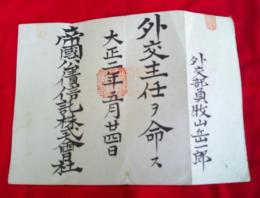 外交部員牧山岳一郎
外交主任ヲ命ス
大正二年五月廿四日
帝國公債信託株式會社